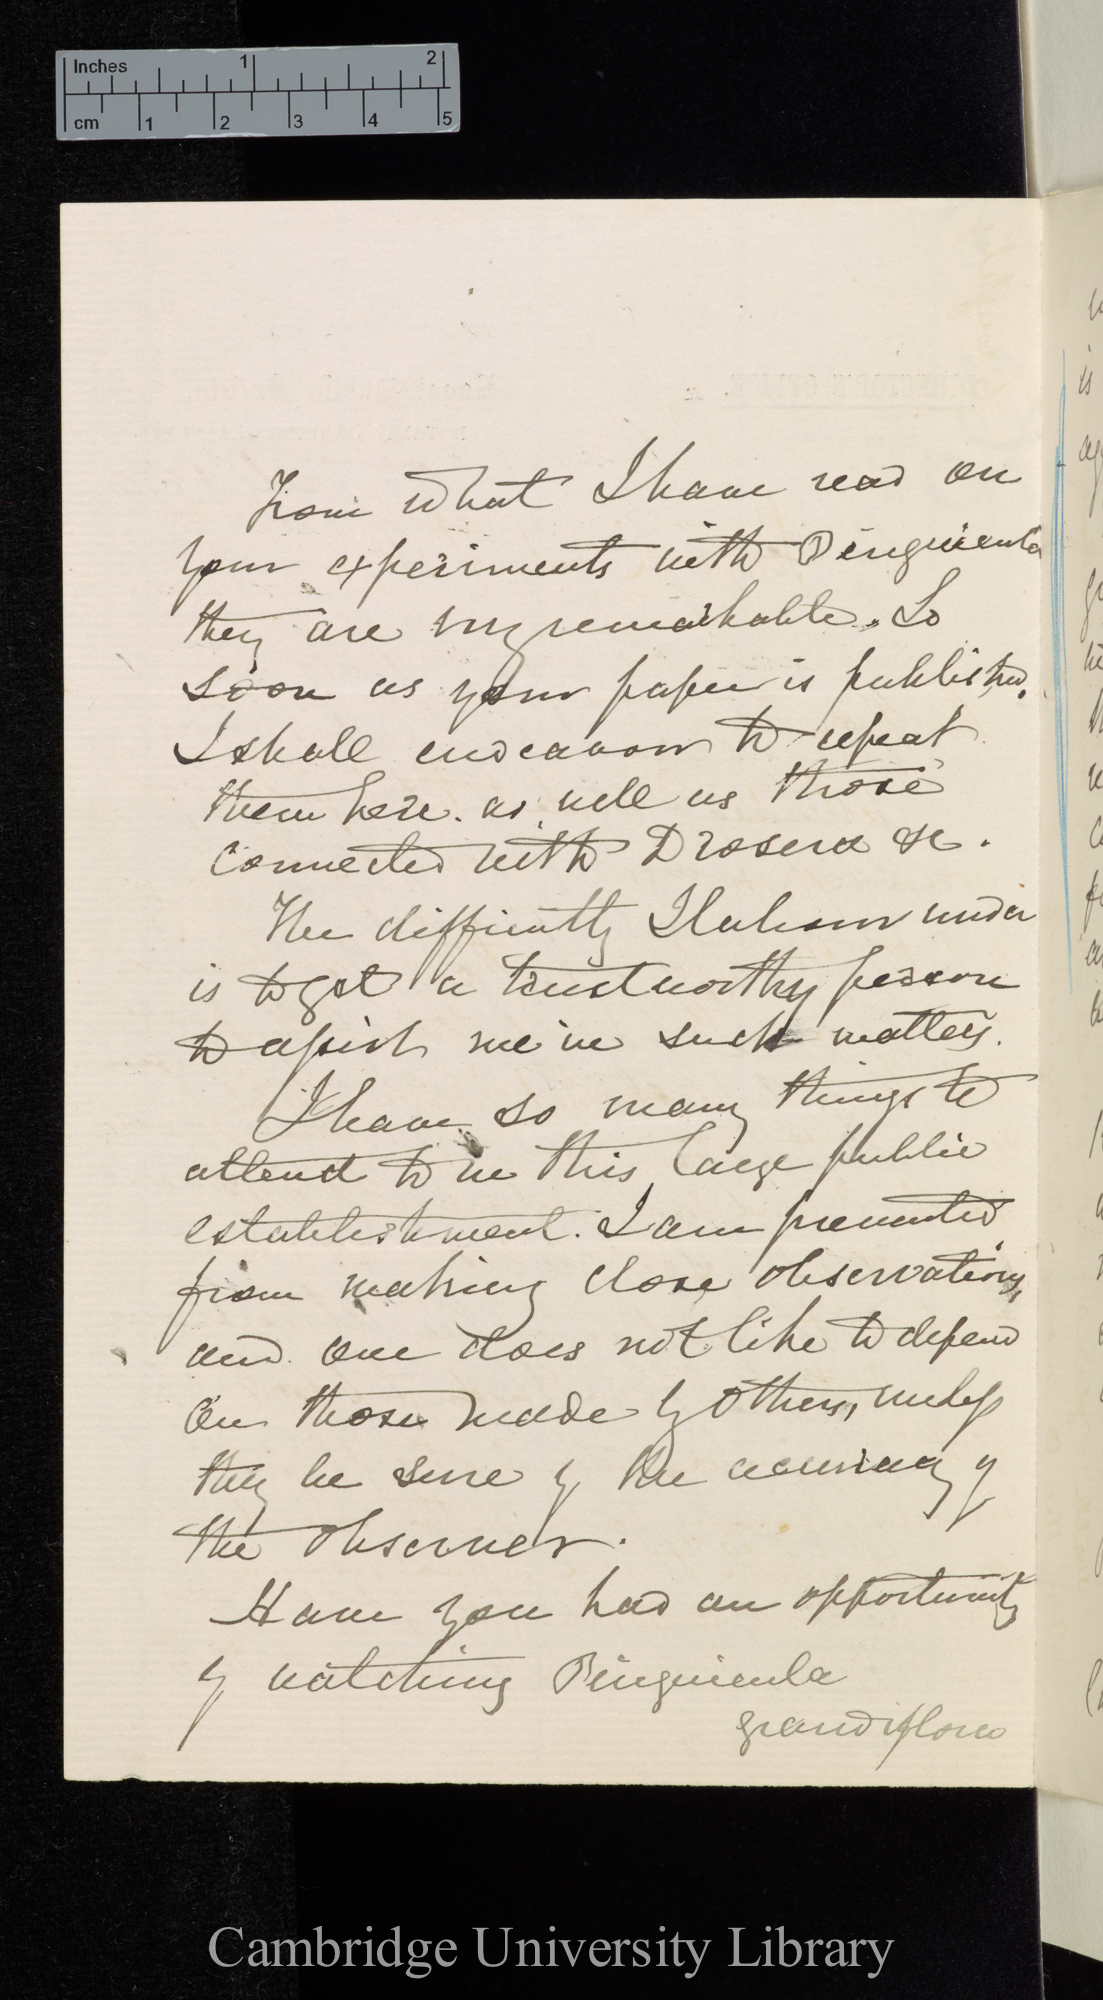 Inches 1 2
cm 1 2 3 4 5
From what I have read on
your experiments with Pinguicula
they are very remarkable. So
soon as your paper is published.
I shall endeavour to repeat
them here. as well as those
connected with Drosera &c.
The difficulty I labour under
is to get a trustworthy person
to assist me in such matters.
I have so many things to
attend to in this large public
establishment. I am prevented
from making close observations,
and one does not like to depend
on those made by others, unless
they be sure of the accuracy of
the observer.
Have you had an opportunity
of watching Pinguicula
grandiflora
Cambridge University Library